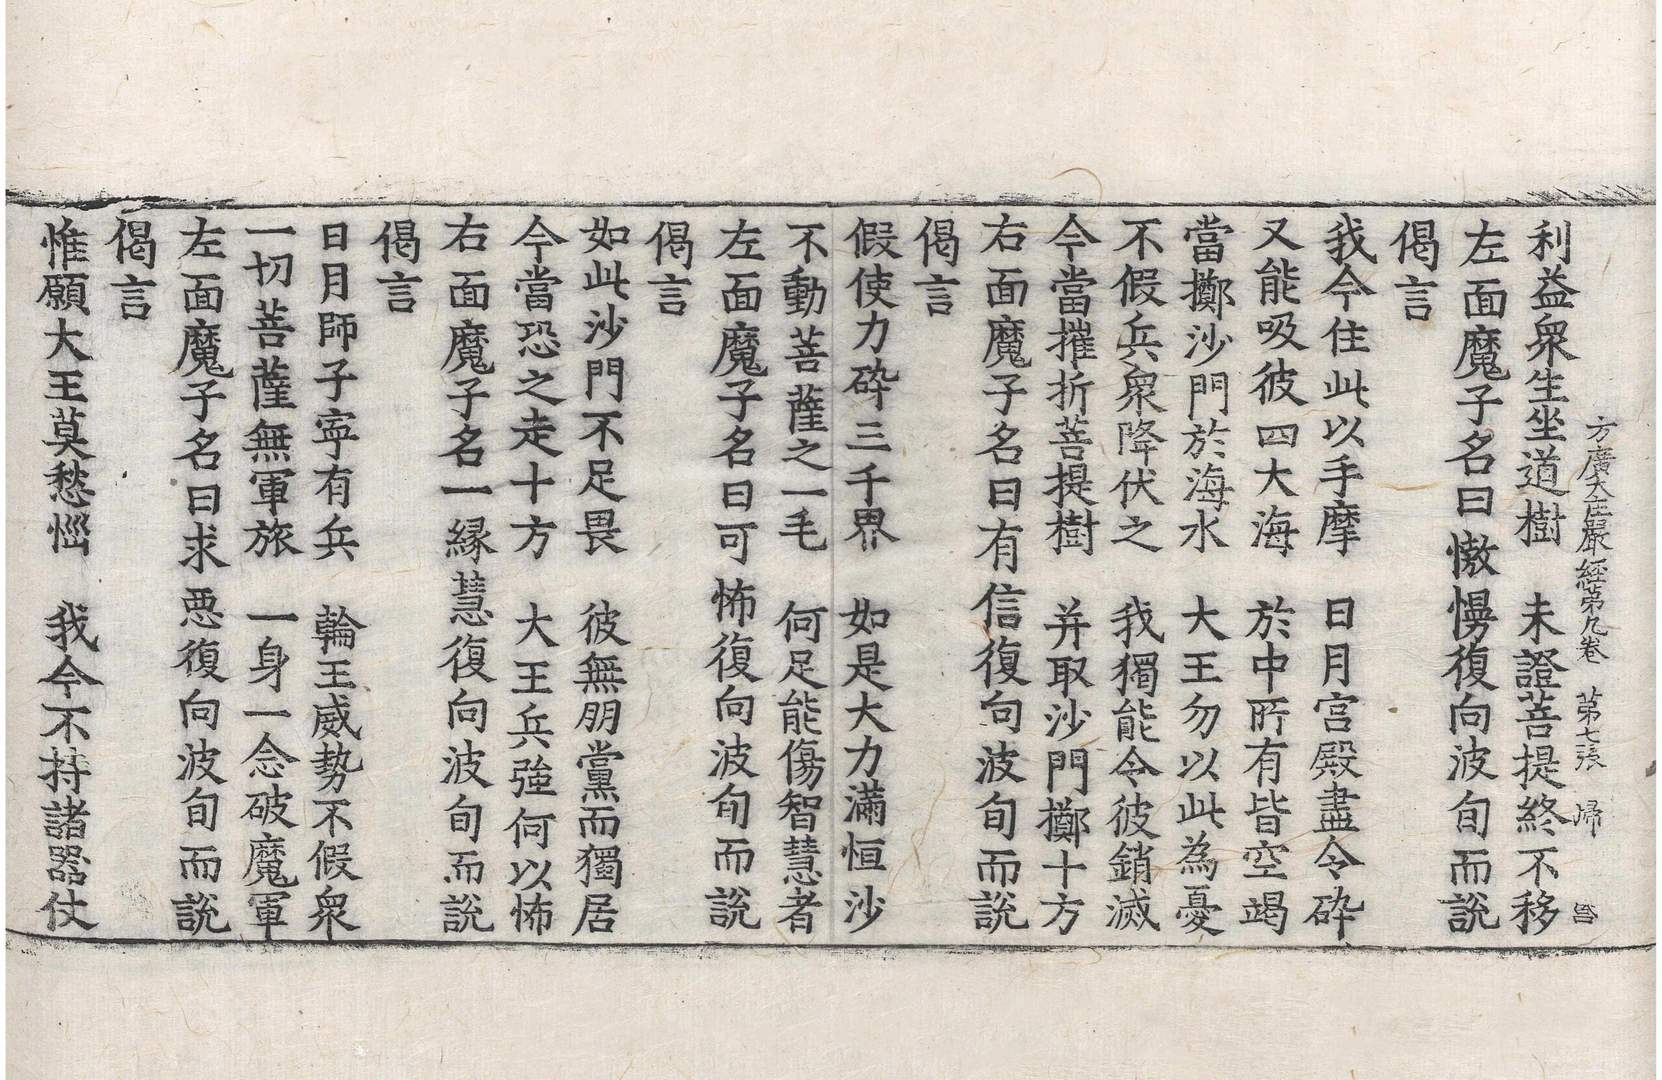 方廣大莊嚴經第九卷　第七張　歸
利益衆生坐道樹　未證菩提終不移
左面魔子名曰慠慢復向波旬而說
偈言
我今住此以手摩　日月宫殿盡令碎
又能吸彼四大海　於中所有皆空竭
當擲沙門於海水　大王勿以此為憂
不假兵衆降伏之　我獨能令彼銷滅
今當摧折菩提樹　并取沙門擲十方
右面魔子名曰有信復向波旬而說
偈言
假使力碎三千界　如是大力滿恒沙
不動菩薩之一毛　何足能傷智慧者
左面魔子名曰可怖復向波旬而說
偈言
如此沙門不足畏　彼無朋黨而獨居
今當恐之走十方　大王兵強何以怖
右面魔子名一緣慧復向波旬而說
偈言
日月師子寧有兵　輪王威勢不假衆
一切菩薩無軍旅　一身一念破魔軍
左面魔子名曰求惡復向波旬而說
偈言
惟願大王莫愁惱　我今不持諸器仗